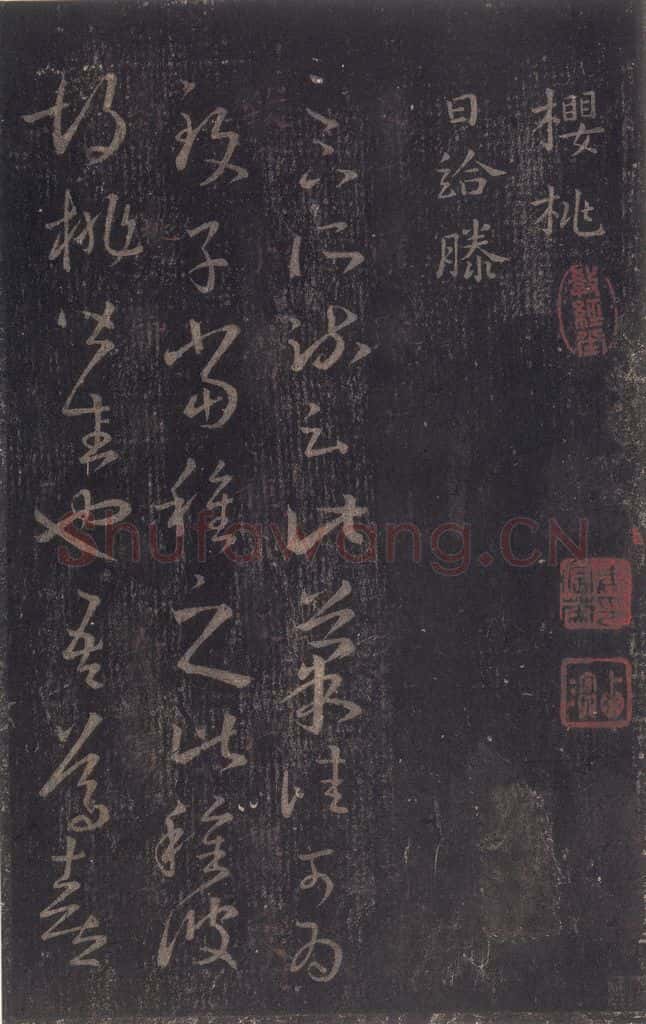 櫻桃
日給滕
足下所疏云此菓佳可為
致子當種之此種彼
胡桃皆生也吾篤喜
Shufawang.CN